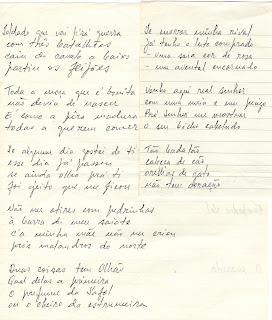 Soldado que vai prá guerra
com três batalhões
caiu do cavalo a baixo
partiu os feijões
Toda a moça que é bonita
não devia de nascer
É como a pêra madura
todos a querem comer
Se algum dia gostei de ti
esse dia já passou
se ainda olho prá ti
foi jeito que me ficou
Não me atires com pedrinhas
à barra do meu saiote
c'a minha mãe não me criou
prós malandros do norte
Duas coisas tem Olhão
Qual delas a primeira
o perfume da Safol
ou o cheiro da estrumeira
Se morrer minha rival
já tenho o luto comprado
- uma saia cor de rosa
- um avental encarnado
Venho aqui real senhor
com uma meia e um
senhor me mostrar
o seu bicho cabeludo
Tão badalão
cabeça de cão
orelhas de gato
não tem coração